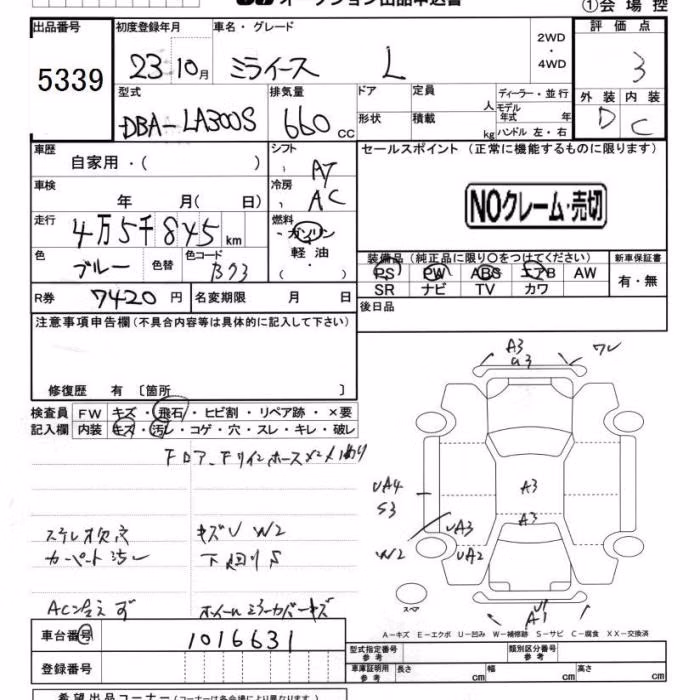 オークション出品申込書 ①会場控
出品番号 初度登録年月 車名・グレード 2WD ・ 4WD 評価点
5339 23 10月 ミライース L 3
型式 排気量 ドア 定員 人 ディーラー・並行 外装 内装
DBA-LA300S 660cc 形状 積載 kg モデル年式 年 ハンドル 左・右 D C
車歴 シフト セールスポイント(正常に機能するものに限ります)
自家用・( ) AT
車検 冷房
年 月( 日) AC
NOクレーム・売切
走行 4万5千845km 燃料 ・ガソリン 軽油 ・( )
色 ブルー 色替 色コード B93
装備品(純正品に限り○をつけてください) 新車保証書
PS PW ABS エアB AW 有・無
SR ナビ TV カワ
R券 7420円 名変期限 月 日 後日品
注意事項申告欄(不具合内容等は具体的に記入して下さい)
修復歴 有〔箇所 〕
検査員 FW キズ・飛石・ヒビ割・リペア跡・×要
記入欄 内装 キズ・汚レ・コゲ・穴・スレ・キレ・破レ
A3
G3
ワレ
UA4
S3
A3
A3
UA3
W2 UA2
キズU W2
カーペット汚レ 下廻りS
AC冷えず ホイールミラーカバーキズ
スペア
A1
A-キズ E-エクボ U-凹み W-補修跡 S-サビ C-腐食 XX-交換済
車台番号 1016631
型式指定番号 参考 類別区分番号 参考
登録番号
車庫証明用 参考 長さ cm 幅 cm 高さ cm
希望出品コーナー(コーナーは各会場により異なります)